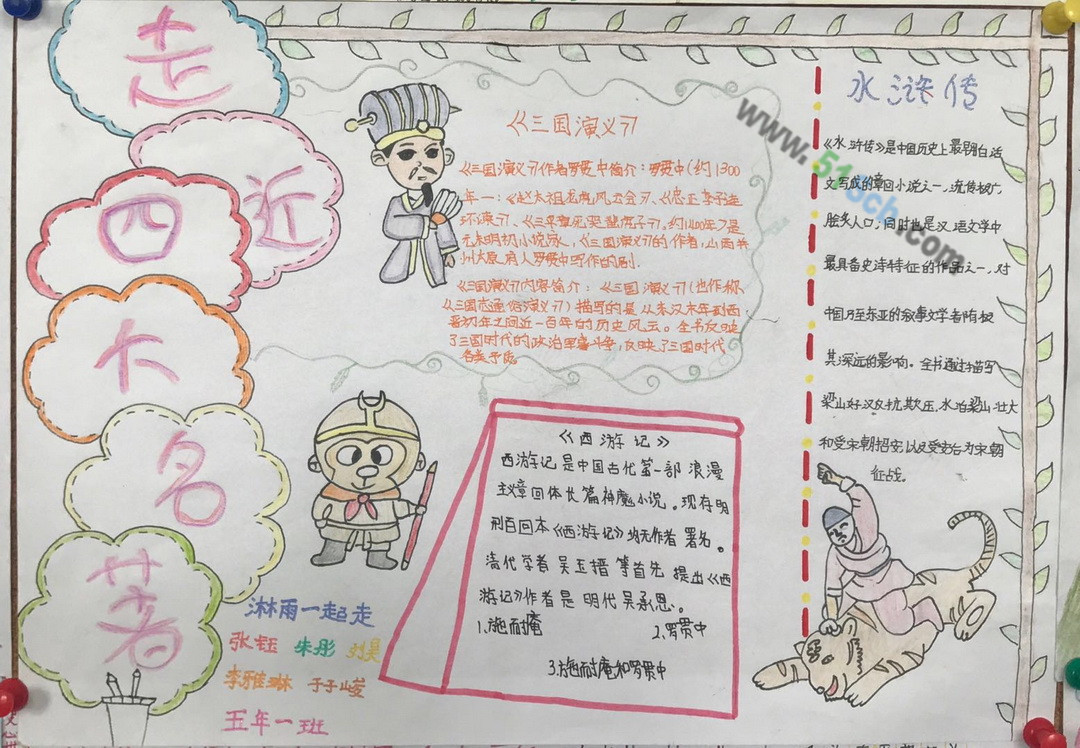 走
近
四
大
名
著
《三国演义》
《三国演义》作者罗贯中简介：罗贯中（约1300
年一：《赵太祖龙虎风云会》、《忠正孝子连
环谏》、《三平章死哭蜚虎子》。约1400年）是
元末明初小说家，《三国演义》的作者，山西并
州太原府人罗贯中写作的剧.
《三国演义》内容简介：《三国演义》（也作称、
《三国志通俗演义》）描写的是从东汉末年到西
晋初年之间近一百年的历史风云。全书反映
了三国时代的政治军事斗争，反映了三国时代
各类矛盾
水浒传
《水浒传》是中国历史上最早用白话
文写成的章回小说之一，流传极广
脍炙人口，同时也是汉语文学中
最具备史诗特征的作品之一，对
中国乃至东亚的叙事文学者有极
其深远的影响。全书通过描写
梁山好汉反抗欺压、水泊梁山壮大
和受宋朝招安，以及受安后为宋朝
征战。
《西游记》
西游记是中国古代第一部浪漫
主义章回体长篇神魔小说。现存明
刊百回本《西游记》均无作者署名。
清代学者吴玉搢等首先提出《西
游记》作者是明代吴承恩。
1.施耐庵 2.罗贯中
3.施耐庵和罗贯中
淋雨一起走
张钰 朱彤 刘昊
李雅琳 于子峻
五年一班
www.515ch.com